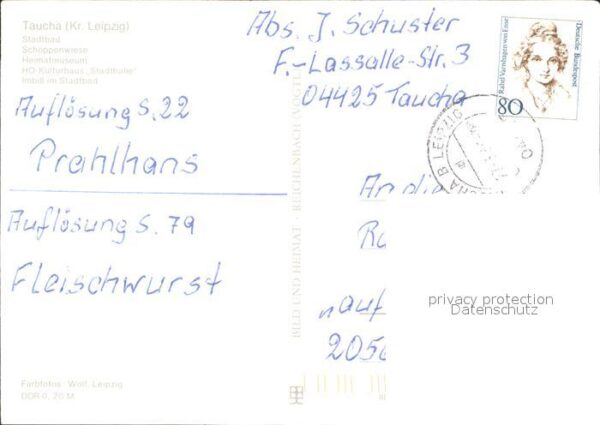 Taucha (Kr. Leipzig)
Stadtbad
Schoppenwiese
Heimatmuseum
HO-Kulturhaus „Stadthalle"
Imbiß im Stadtbad
Auflösung S. 22
Prahlhans
Auflösung S. 79
Fleischwurst
Farbfotos: Wolf, Leipzig
DDR 0,20 M
BILD UND HEIMAT · REICHENBACH (VOGTL
Abs. J. Schuster
F.-Lassalle-Str. 3
04425 Taucha
Rahel Varnhagen von Ense
Deutsche Bundespost
80
TAUCHA B LEIPZIG
An die
Ra
„auf
2050
privacy protection
Datenschutz